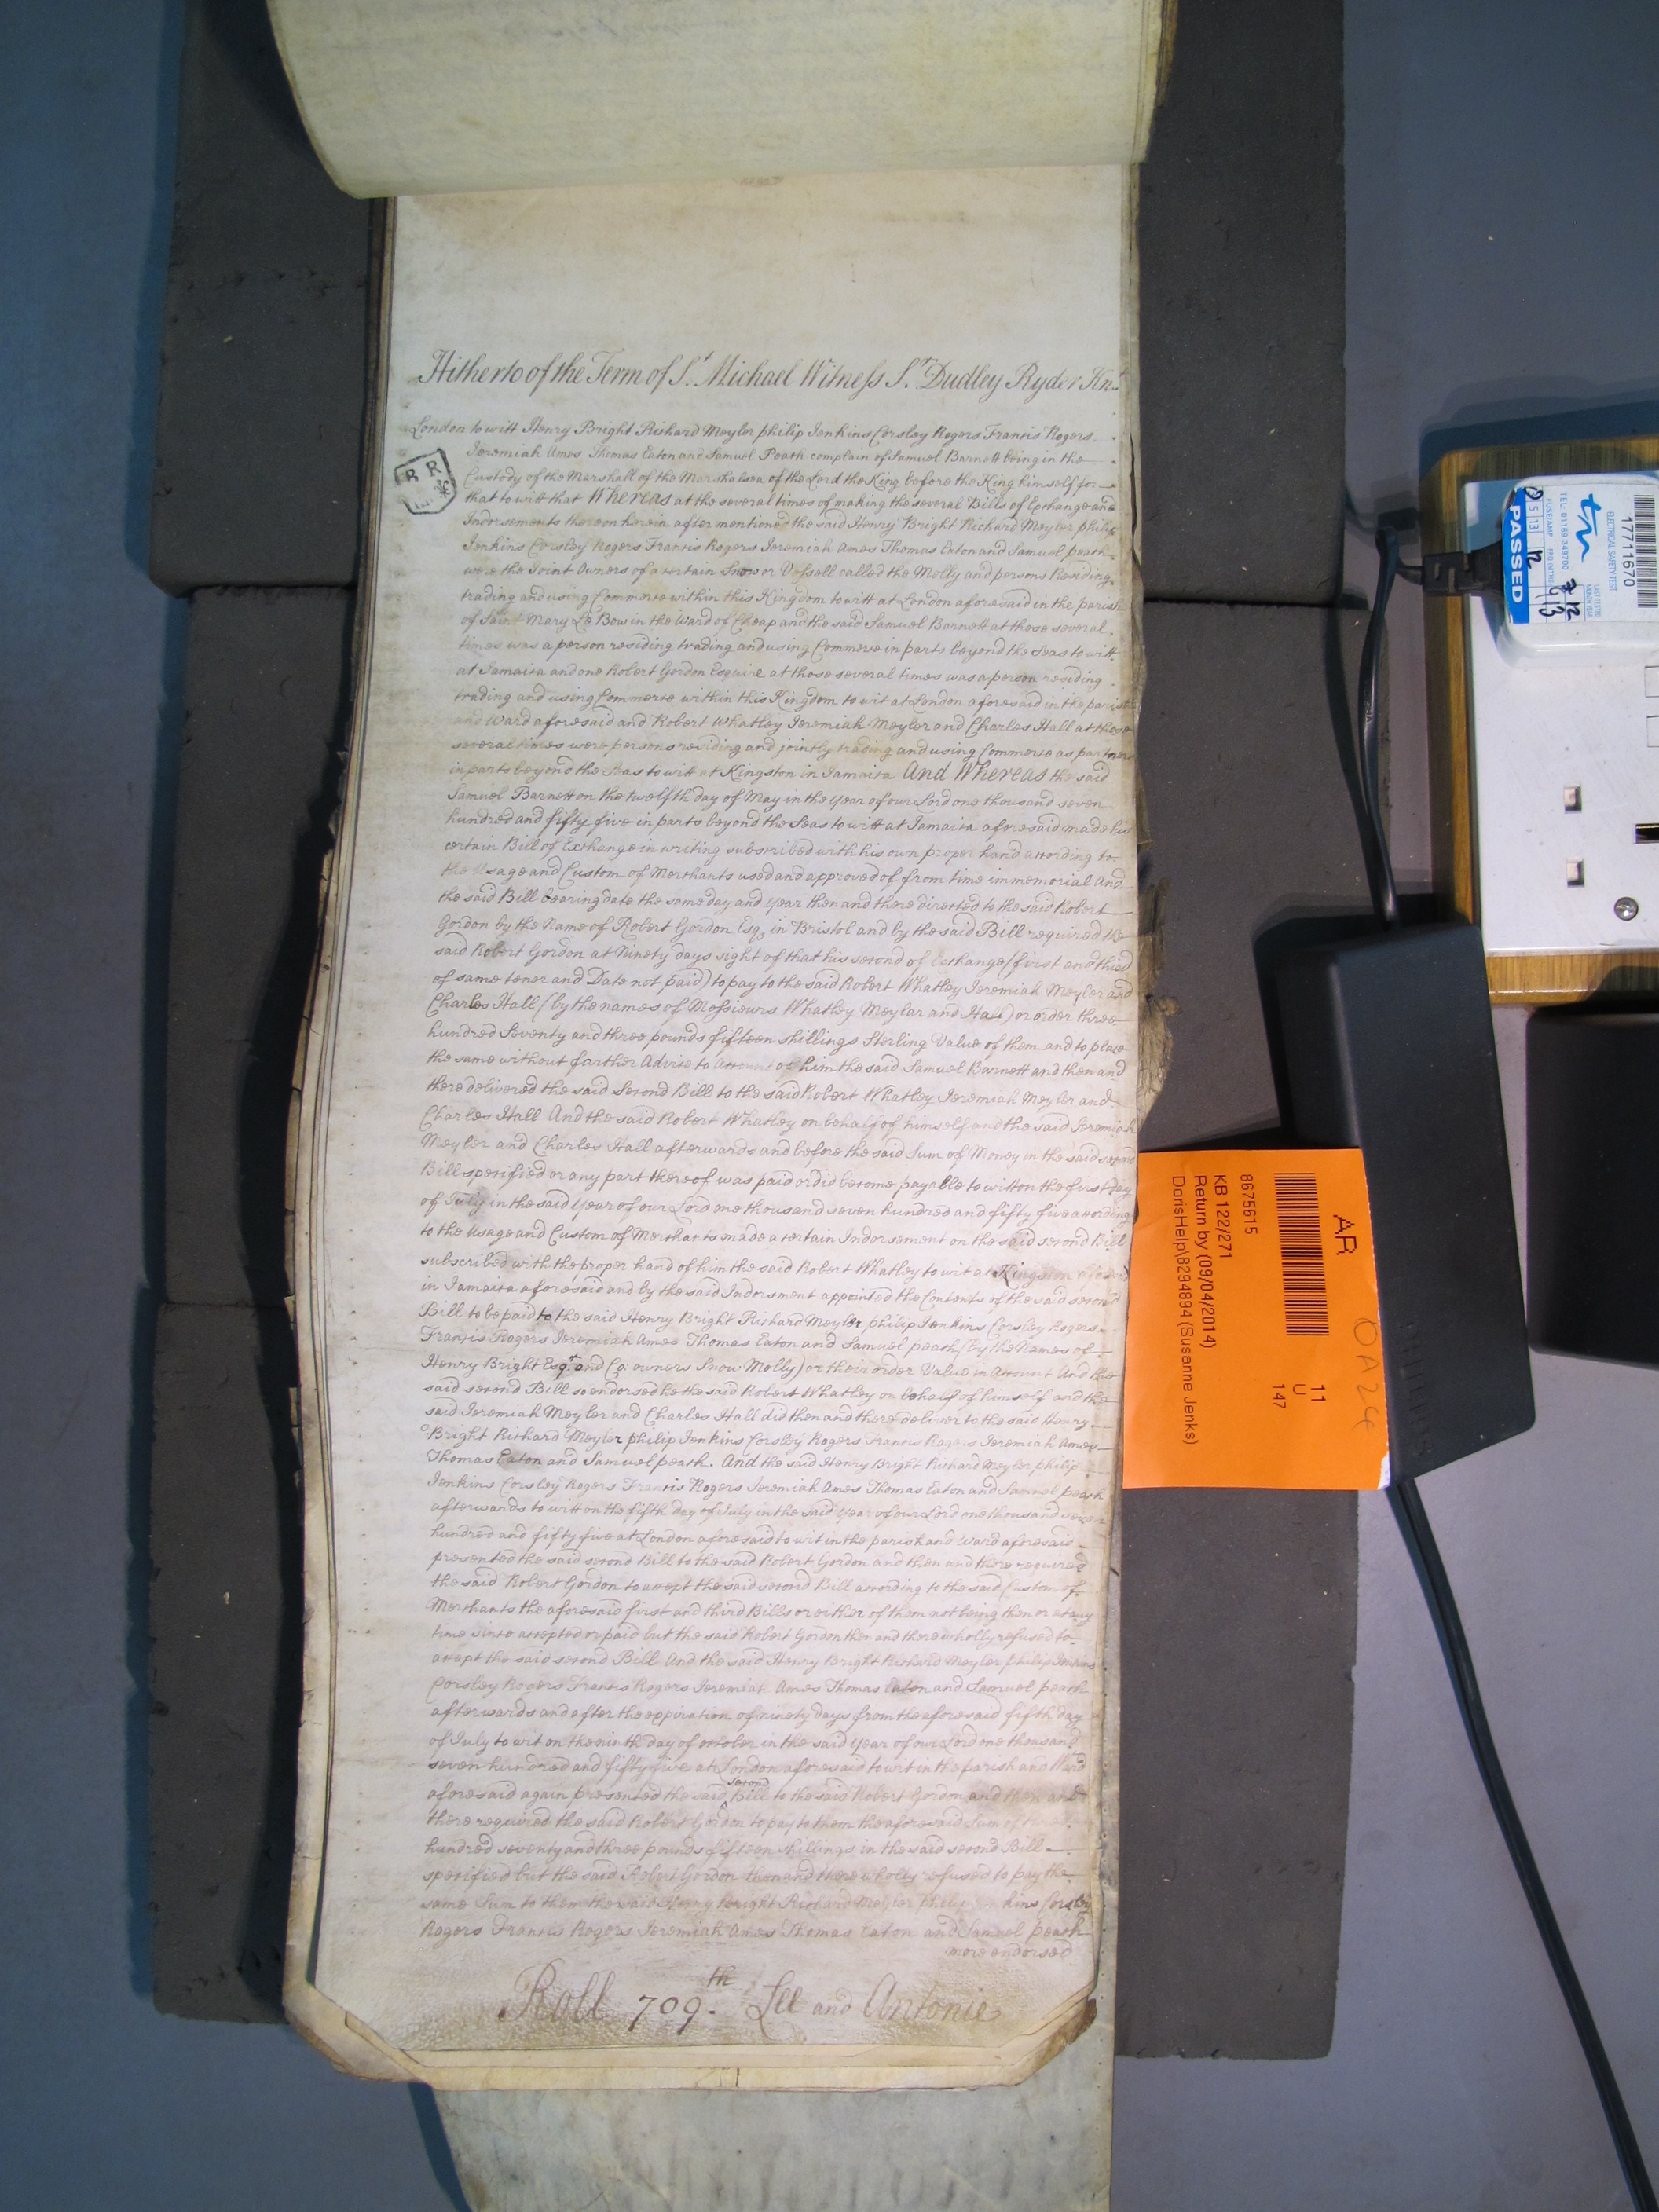 Hitherto of the Term of St. Michael Witness Sr. Dudley Ryder Knt.
London to witt Henry Bright Richard Meyler philip Jenkins Corsley Rogers Francis Rogers
Jeremiah Ames Thomas Eaton and Samuel Peach complain of Samuel Barnett being in the
Custody of the Marshall of the Marshalsea of the Lord the King before the King himself for
that to witt that Whereas at the several times of making the several Bills of Exchange and
Indorsements thereon herein after mentioned the said Henry Bright Richard Meyler philip
Jenkins Corsley Rogers Francis Rogers Jeremiah Ames Thomas Eaton and Samuel peach
were the Joint Owners of a certain Snow or Vessell called the Molly and persons Residing
trading and using Commerce within this Kingdom to witt at London aforesaid in the parish
of Saint Mary Le Bow in the Ward of Cheap and the said Samuel Barnett at those several
times was a person residing trading and using Commerce in parts beyond the Seas to witt
at Jamaica and one Robert Gordon Esquire at those several times was a person residing
trading and using Commerce within this Kingdom to wit at London aforesaid in the parish
and Ward aforesaid and Robert Whatley Jeremiah Meyler and Charles Hall at those
several times were persons residing and jointly trading and using Commerce as partners
in parts beyond the Seas to witt at Kingston in Jamaica And Whereas the said
Samuel Barnett on the twelfth day of May in the year of our Lord one thousand seven
hundred and fifty five in parts beyond the Seas to witt at Jamaica aforesaid made his
certain Bill of Exchange in writing subscribed with his own proper hand according to
the Usage and Custom of Merchants used and approved of from time immemorial And
the said Bill bearing date the same day and year then and there directed to the said Robert
Gordon by the Name of Robert Gordon Esqr. in Bristol and by the said Bill required the
said Robert Gordon at Ninety days sight of that his second of Exchange (first and third
of same tenor and Date not paid) to pay to the said Robert Whatley Jeremiah Meyler and
Charles Hall (by the names of Messieurs Whatley Meylar and Hall) or order three
hundred Seventy and three pounds fifteen shillings Sterling Value of them and to place
the same without farther Advice to Account of him the said Samuel Barnett and then and
there delivered the said Second Bill to the said Robert Whatley Jeremiah Meyler and
Charles Hall And the said Robert Whatley on behalf of himself and the said Jeremiah
Meyler and Charles Hall afterwards and before the said Sum of Money in the said second
Bill specified or any part thereof was paid or did become payable to wit on the first day
of July in the said year of our Lord one thousand seven hundred and fifty five according
to the Usage and Custom of Merchants made a certain Indorsement on the said second Bill
subscribed with the proper hand of him the said Robert Whatley to wit at Kingston aforesaid
in Jamaica aforesaid and by the said Indorsment appointed the Contents of the said second
Bill to be paid to the said Henry Bright Richard Meyler philip Jenkins Corsley Rogers
Francis Rogers Jeremiah Ames Thomas Eaton and Samuel peach (by the Names of
Henry Bright Esqr. and Co: owners Snow Molly) or their order Value in Account And the
said second Bill so endorsed he the said Robert Whatley on behalf of himself and the
said Jeremiah Meyler and Charles Hall did then and there deliver to the said Henry
Bright Richard Meyler philip Jenkins Corsley Rogers Francis Rogers Jeremiah Ames
Thomas Eaton and Samuel peach. And the said Henry Bright Richard Meyler philip
Jenkins Corsley Rogers Francis Rogers Jeremiah Ames Thomas Eaton and Samuel peach
afterwards to witt on the fifth day of July in the said year of our Lord one thousand seven
hundred and fifty five at London aforesaid to wit in the parish and Ward aforesaid
presented the said second Bill to the said Robert Gordon and then and there required
the said Robert Gordon to accept the said second Bill according to the said Custom of
Merchants the aforesaid first and third Bills or either of them not being then or at any
time since accepted or paid but the said Robert Gordon then and there wholly refused to
accept the said second Bill And the said Henry Bright Richard Meyler philip Jenkins
Corsley Rogers Francis Rogers Jeremiah Ames Thomas Eaton and Samuel peach
afterwards and after the expiration of ninety days from the aforesaid fifth day
of July to wit on the ninth day of october in the said year of our Lord one thousand
seven hundred and fifty five at London aforesaid to wit in the parish and Ward
aforesaid again presented the said second Bill to the said Robert Gordon and then and
there required the said Robert Gordon to pay to them the aforesaid Sum of three
hundred seventy and three pounds fifteen shillings in the said second Bill
specified but the said Robert Gordon then and there wholly refused to pay the
same Sum to them the said Henry Bright Richard Meyler philip Jenkins Corsley
Rogers Francis Rogers Jeremiah Ames Thomas Eaton and Samuel peach
more endorsed
Roll 709.th Lee and Antonie
R R
AR
8675615
KB 122/271
Return by (09/04/2014)
DorisHelp\8294894 (Susanne Jenks)
11
U
147
OA24
1771670
ELECTRICAL SAFETY TEST
TEL: 01189 349700
PASSED